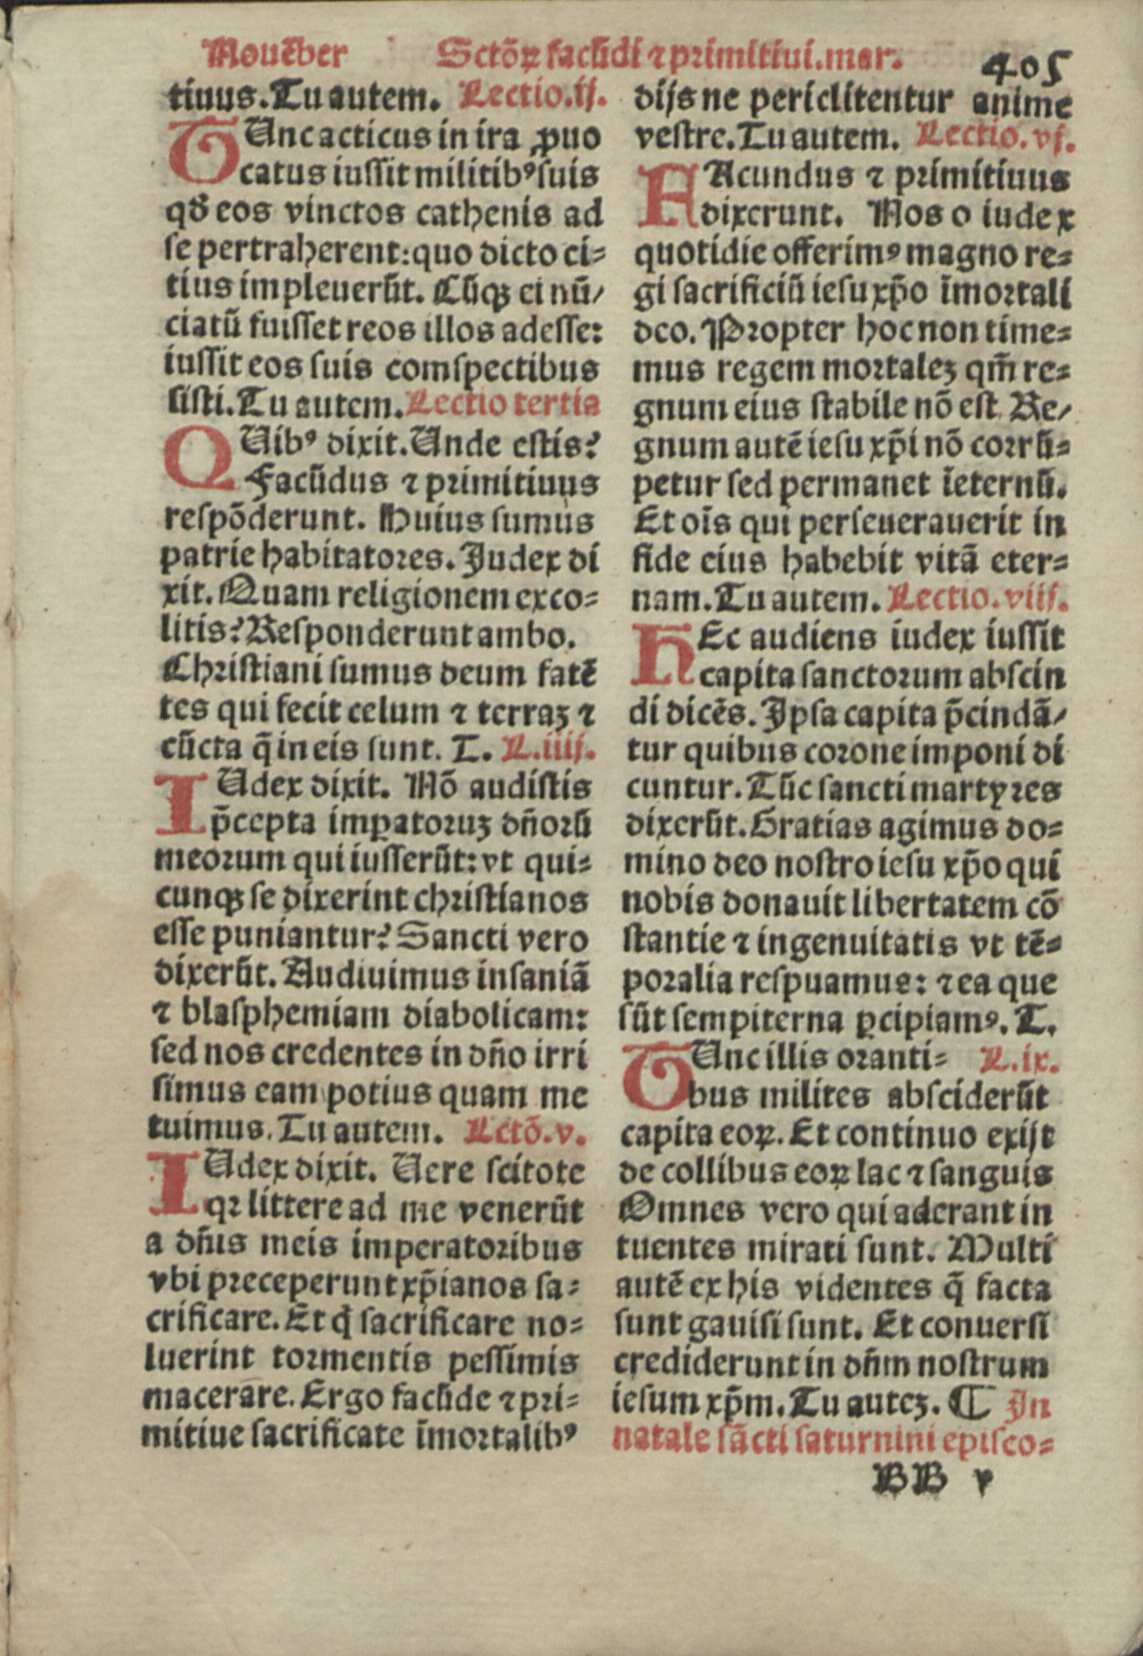 Nouēber Sctōꝝ facūdi ⁊ primitiui.mar. 405
tiuus. Tu autem. Lectio.ij.
TUnc acticus in ira ꝓuo
catus iussit militibꝰ suis
qđ eos vinctos cathenis ad
se pertraherent: quo dicto ci-
tius impleuerūt. Cūqꝫ ei nū/
ciatū fuisset reos illos adesse:
iussit eos suis comspectibus
sisti. Tu autem. Lectio tertia
QUibꝰ dixit. Unde estis?
Facūdus ⁊ primitiuus
respōderunt. Huius sumus
patrie habitatores. Judex di
xit. Quam religionem exco-
litis? Responderunt ambo.
Christiani sumus deum fatē
tes qui fecit celum ⁊ terraꝫ ⁊
cūcta q̄ in eis sunt. T. L.iiij.
IUdex dixit. Nō audistis
p̄cepta imꝑatoruꝫ dn̄orū
meorum qui iusserūt: vt qui-
cunqꝫ se dixerint christianos
esse puniantur? Sancti vero
dixerūt. Audiuimus insaniā
⁊ blasphemiam diabolicam:
sed nos credentes in dn̄o irri
simus eam potius quam me
tuimus. Tu autem. Lctō.v.
IUdex dixit. Uere scitote
qꝛ littere ad me venerūt
a dn̄is meis imperatoribus
vbi preceperunt xp̄ianos sa-
crificare. Et q̇ sacrificare no-
luerint tormentis pessimis
macerare. Ergo facūde ⁊ pri-
mitiue sacrificate īmortalibꝰ
dijs ne periclitentur anime
vestre. Tu autem. Lectio.vj.
FAcundus ⁊ primitiuus
dixerunt. Nos o iudex
quotidie offerimꝰ magno re-
gi sacrificiū iesu xp̄o īmortali
deo. Propter hoc non time-
mus regem mortaleꝫ qm̄ re-
gnum eius stabile nō est. Re/
gnum autē iesu xp̄i nō corrū-
petur sed permanet īeternū.
Et oīs qui perseuerauerit in
fide eius habebit vitā eter-
nam. Tu autem. Lectio.viij.
HEc audiens iudex iussit
capita sanctorum abscin
di dicēs. Ipsa capita p̄cindā/
tur quibus corone imponi di
cuntur. Tūc sancti martyres
dixerūt. Gratias agimus do-
mino deo nostro iesu xp̄o qui
nobis donauit libertatem cō
stantie ⁊ ingenuitatis vt tē-
poralia respuamus: ⁊ ea que
sūt sempiterna ꝑcipiamꝰ. T.
TUnc illis oranti- L.ix.
bus milites absciderūt
capita eoꝝ. Et continuo exijt
de collibus eoꝝ lac ⁊ sanguis
Omnes vero qui aderant in
tuentes mirati sunt. Multi
autē ex his videntes q̄ facta
sunt gauisi sunt. Et conuersi
crediderunt in dn̄m nostrum
iesum xp̄m. Tu auteꝫ. ¶ In
natale sācti saturnini episco-
BB v